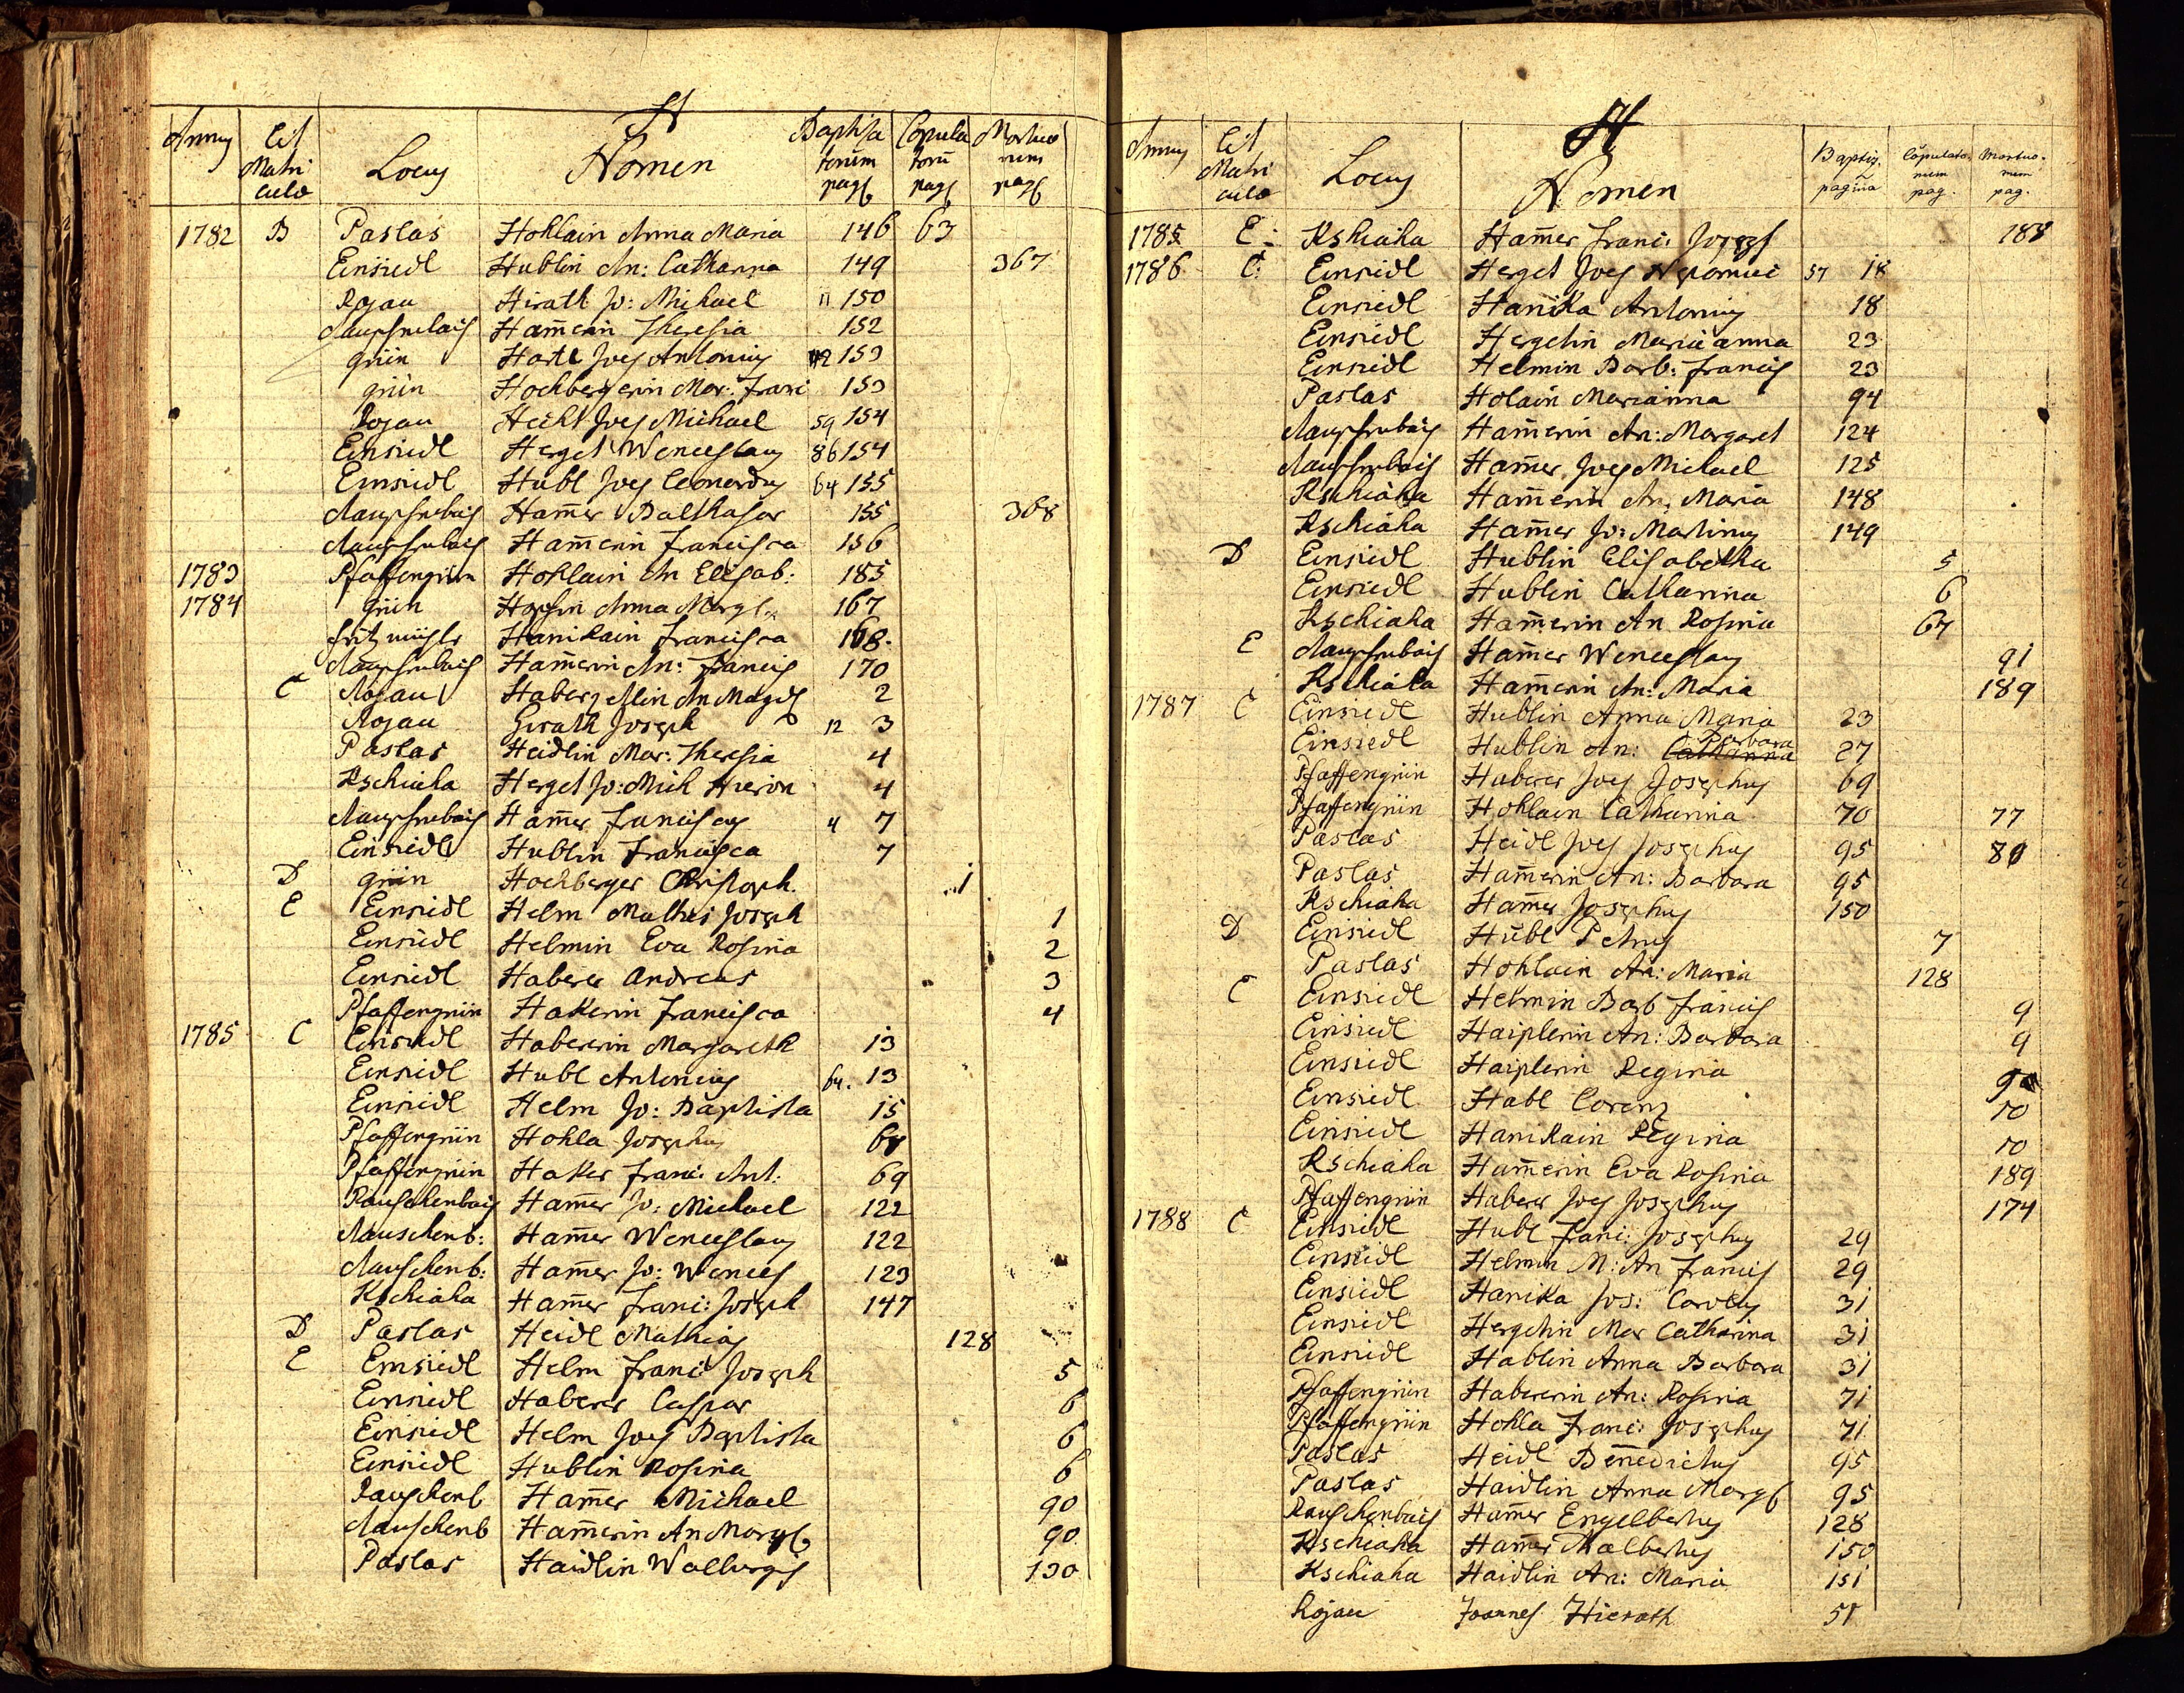 H
Annus Lit Matri culæ Locus Nomen Baptisa torum pag Copula torū pag Mortuo rum pag
1782 B Paslas Hohlain Anna Maria 146 63
Einsiedl Hublin An: Catharina 149 367
Rojau Hirath Jo: Michael 11 150
Ham̄erin Theresia 152
grün Hatl Joes Antonius 153
grün Hochbergerin Mar: Franc 153
Rojau Hecht Joes Michael 59 154
Einsiedl Herget Wenceslaus 86 154
Einsiedl Hubl Joes Leonardus 64 155
Ham̄er Balthasar 155 368
Ham̄erin Francisca 156
1783 Pfaffengrün Hohlain An Elisab: 185
1784 grün Anna Marg 167
Hanikain Francisca 168.
Ham̄erin An: Francis 170
C Rojau An Magd 2
Rojau Girath Joseph 12 3
Paslas Heidlin Mar: Theresia 4
Kschiaha Herget Jo: Mich Hieron 4
Ham̄er Franciscus 4 7
Einsiedl Hublin Francisca 7
D grün Hochberger Christoph. 1
E Einsiedl Helm Mathis Joseph 1
Einsiedl Helmin Eva Rosina 2
Einsiedl Haberer Andreas 3
Pfaffengrün Hakerin Francisca 4
1785 C Einsiedl Habererin Margareth 13
Einsiedl Hubl Antonius 64. 13
Einsiedl Helm Jo: Baptista 15
Pfaffengrün Hohla Josephus
Pfaffengrün Haker Franc: Ant: 69
Rauschenbais Ham̄er Jo: Michael 122
Rauschenb: Ham̄er Wenceslaus 122
Rauschenb: Ham̄er Jo: Wences 123
Kschiaha Ham̄er Franc: Joseph 147
D Paslas Heidl Mathias 128
E Einsiedl Helm Franc: Joseph 5
Einsiedl Haberer Caspar 6
Einsiedl Helm Joes Baptista 6
Einsiedl Hublin Rosina 6
Rauschenb Ham̄er Michael 90
Rauschenb Ham̄erin An Marg 90
Paslas Haidlin Walburgis 130
H
Annus Lit Matri culæ Locus Nomen Baptiz. pagina Copulato rum pag. Mortuo. rum pag.
1785 E: Kschiaha Ham̄er Franc: Joseph 188
1786 C: Einsiedl Herget Joes Nepomuc 57 18
Einsiedl Hanika Antonius 18
Einsiedl Hergetin Maria anna 23
Einsiedl Helmin Barb: Francis 23
Paslas Holain Marianna 94
Ham̄erin An: Margaret 124
Ham̄er Joes Michael 125
Kschiaha Ham̄erin An: Maria 148
Kschiaha Ham̄er Jo: Martinus 149
D Einsiedl Hublin Elisabetha 5
Einsiedl Hublin Catharina 6
Kschiaha Ham̄erin An Rosina 67
E Ham̄er Wenceslaus 91
Kschiaha Ham̄erin An: Maria 189
1787 C Einsiedl Hublin Anna Maria 23
Einsiedl Hublin An: Catharina Barbara 27
Pfaffengrün Haberer Joes Josephus 69
Pfaffengrün Hohlain Catharina 70 77
Paslas Heidl Joes Josephus 95 80
Paslas Ham̄erin An: Barbara 95
Kschiaha Ham̄er Josephus 150
D Einsiedl Hübl Petrus 7
Paslas Hohlain An: Maria 128
C Einsiedl Helmin Barb Francis 9
Einsiedl Haiplerin An: Barbara 9
Einsiedl Haiplerin Regina 9
Einsiedl Habl Lorenz 10
Einsiedl Hanikain Regina 10
Kschiaha Ham̄erin Eva Rosina 189
Pfaffengrün Haberer Joes Josephus 174
1788 C Einsiedl Hubl Franc: Josephus 29
Einsiedl Helmin M: An Francis 29
Einsiedl Hanika Jos: Carolus 31
Einsiedl Hergetin Mar Catharina 31
Einsiedl Hablin Anna Barbara 31
Pfaffengrün Habererin An: Rosina 71
Pfaffengrün Hohla Franc: Josephus 71
Paslas Heidl Benedictus 95
Paslas Haidlin Anna Marg 95
Rauschenbais Ham̄er Engelbertus 128
Kschiaha Ham̄er Adalbertus 150
Kschiaha Haidlin An: Maria 151
Rojau Joannes Hierath 51